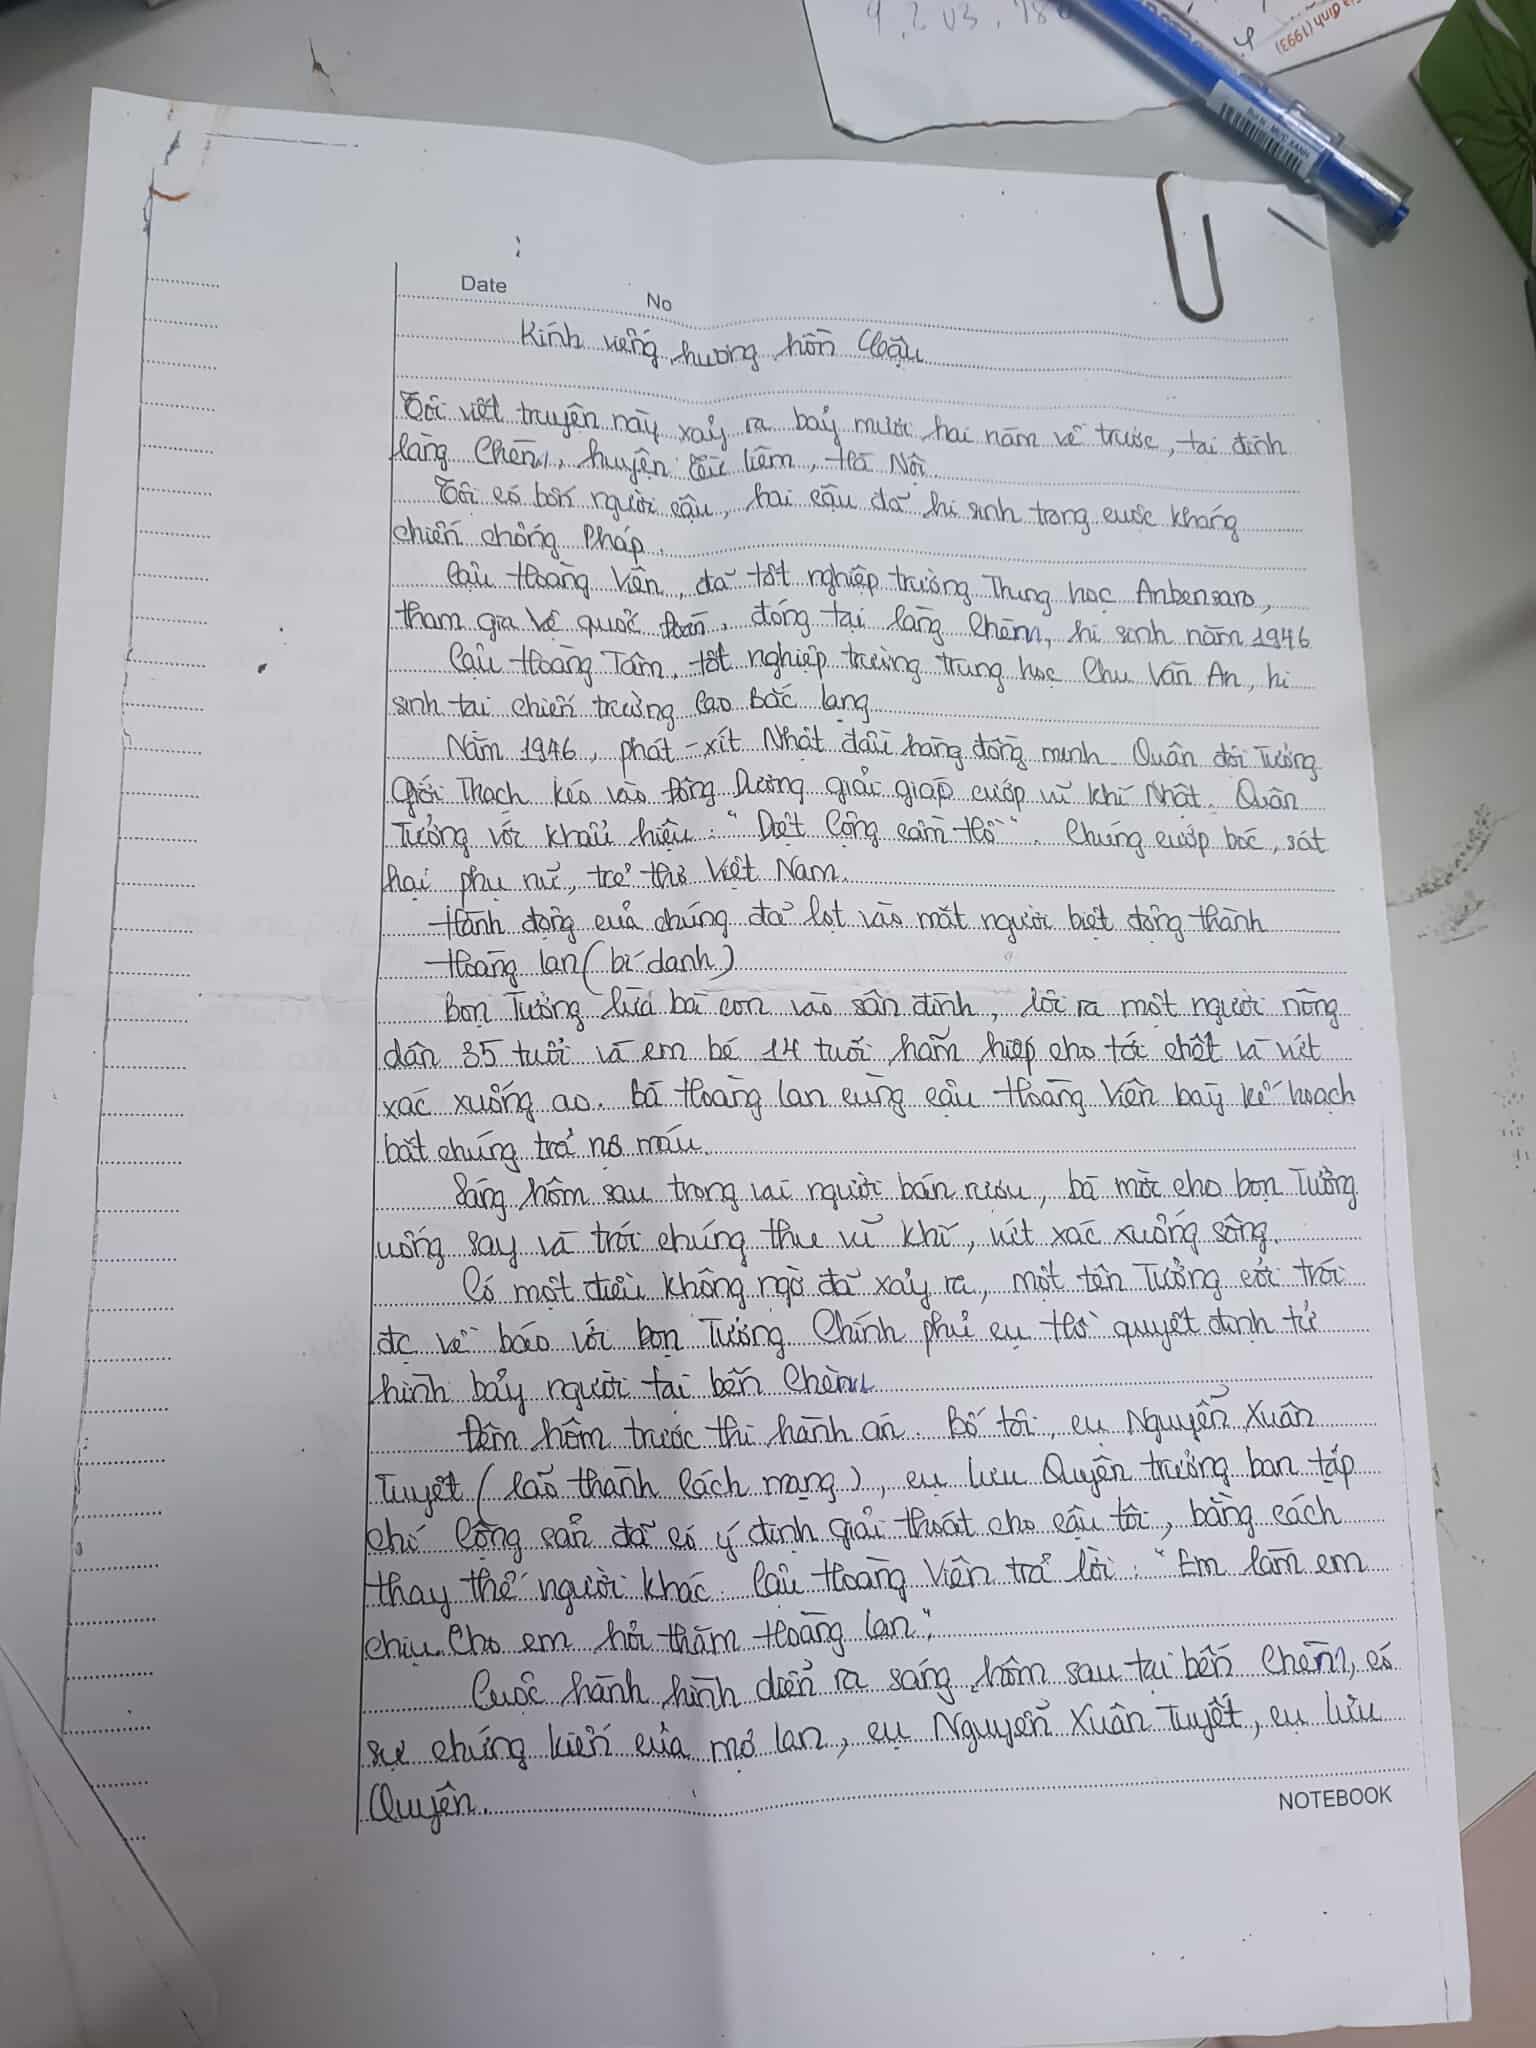 9.203.78
đình (1993)
BÚT NƯỚC XANH
Date
No
Kính viếng hương hồn Cậu
Tôi viết truyện này xảy ra bảy mươi hai năm về trước, tại đình
làng Chèm, huyện Từ Liêm, Hà Nội.
Tôi có bốn người cậu, hai cậu đã hi sinh trong cuộc kháng
chiến chống Pháp.
Cậu Hoàng Viên, đã tốt nghiệp trường Trung học Anbensaro,
tham gia Vệ quốc đoàn, đóng tại làng Chèm, hi sinh năm 1946
Cậu Hoàng Tám, tốt nghiệp trường trung học Chu Văn An, hi
sinh tại chiến trường Cao Bắc Lạng
Năm 1946, phát-xít Nhật đầu hàng đồng minh. Quân đội Tưởng
Giới Thạch kéo vào Đông Dương giải giáp cướp vũ khí Nhật. Quân
Tưởng với khẩu hiệu: "Diệt Cộng cầm Hồ". Chúng cướp bóc, sát
hại phụ nữ, trẻ thơ Việt Nam.
Hành động của chúng đã lọt vào mắt người biệt động thành
Hoàng Lan (bí danh)
Bọn Tưởng lùa bà con vào sân đình, lôi ra một người nông
dân 35 tuổi và em bé 14 tuổi hãm hiếp cho tới chết và vứt
xác xuống ao. Bà Hoàng Lan cùng cậu Hoàng Viên bày kế hoạch
bắt chúng trả nợ máu.
Sáng hôm sau trong vai người bán rượu, bà mời cho bọn Tưởng
uống say và trói chúng thu vũ khí, vứt xác xuống sông.
Có một điều không ngờ đã xảy ra, một tên Tưởng cởi trói
đc về báo với bọn Tưởng Chính phủ cụ Hồ quyết định tử
hình bảy người tại bến Chèm
Đêm hôm trước thi hành án. Bố tôi, cụ Nguyễn Xuân
Tuyết (lão thành Cách mạng), cụ Lưu Quyên trưởng ban tạp
chí Cộng sản đã có ý định giải thoát cho cậu tôi, bằng cách
thay thế người khác. Cậu Hoàng Viên trả lời: "Em làm em
chịu. Cho em hỏi thăm Hoàng Lan"
Cuộc hành hình diễn ra sáng hôm sau tại bến Chèm, có
sự chứng kiến của mợ Lan, cụ Nguyễn Xuân Tuyết, cụ Lưu
Quyên.
NOTEBOOK